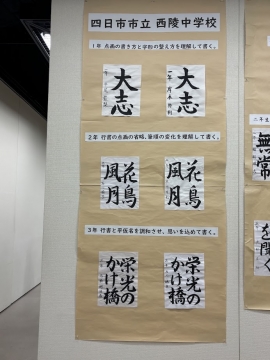 四日市市立 西陵中学校
1年 点画の書き方と字形の整え方を理解して書く。
大志
大志
2年 行書の点画の省略、筆順の変化を理解して書く。
花鳥
風月
花鳥
風月
3年 行書と平仮名を調和させ、思いを込めて書く。
栄光の
かけ橋
栄光の
かけ橋
二年生
無常
を聞く